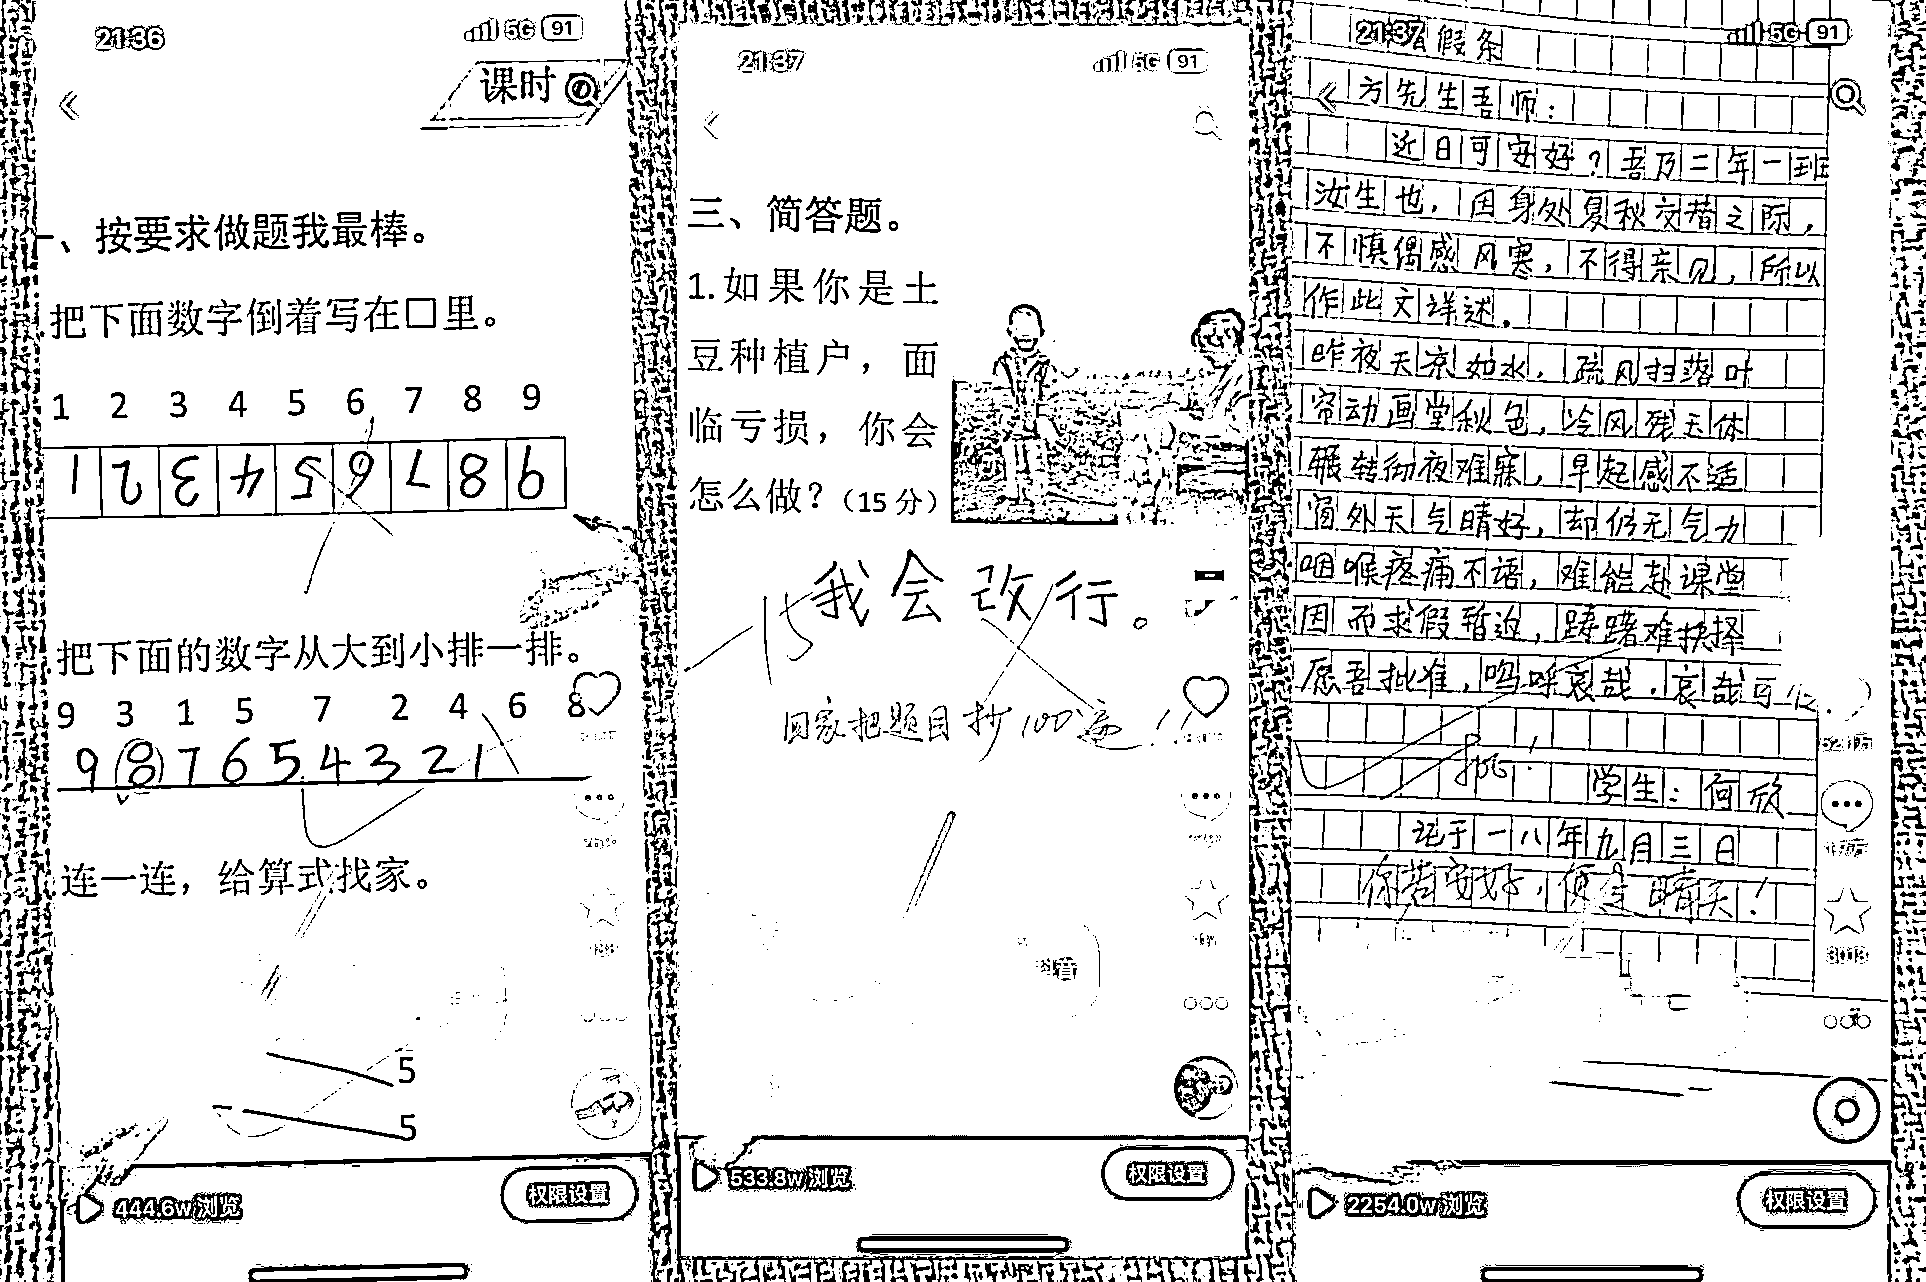 21:36
5G 91
课时
一、按要求做题我最棒。
把下面数字倒着写在□里。
1 2 3 4 5 6 7 8 9
1 2 3 4 5 6 7 8 9
把下面的数字从大到小排一排。
9 3 1 5 7 2 4 6 8
9 8 7 6 5 4 3 2 1
连一连，给算式找家。
5
5
444.6w浏览
权限设置
21:37
5G 91
三、简答题。
1.如果你是土
豆种植户，面
临亏损，你会
怎么做？（15分）
我会改行。
-15
回家把题目抄100遍！！
533.8w浏览
权限设置
21:37
5G 91
假条
方先生吾师：
近日可安好？吾乃二年一班
汝生也，因身处夏秋交替之际，
不慎偶感风寒，不得亲见，所以
作此文详述。
昨夜天凉如水，疏风扫落叶
帘动画堂秋色，冷风残天体
辗转彻夜难寐，早起感不适
窗外天气晴好，却仍无气力
咽喉疼痛不语，难能赴课堂
因而求假暂返，踌躇难抉择
愿吾批准，呜呼哀哉，哀哉
批！
学生：何欣
记于一八年九月三日
你若安好，便是晴天！
3013
2254.0w浏览
权限设置